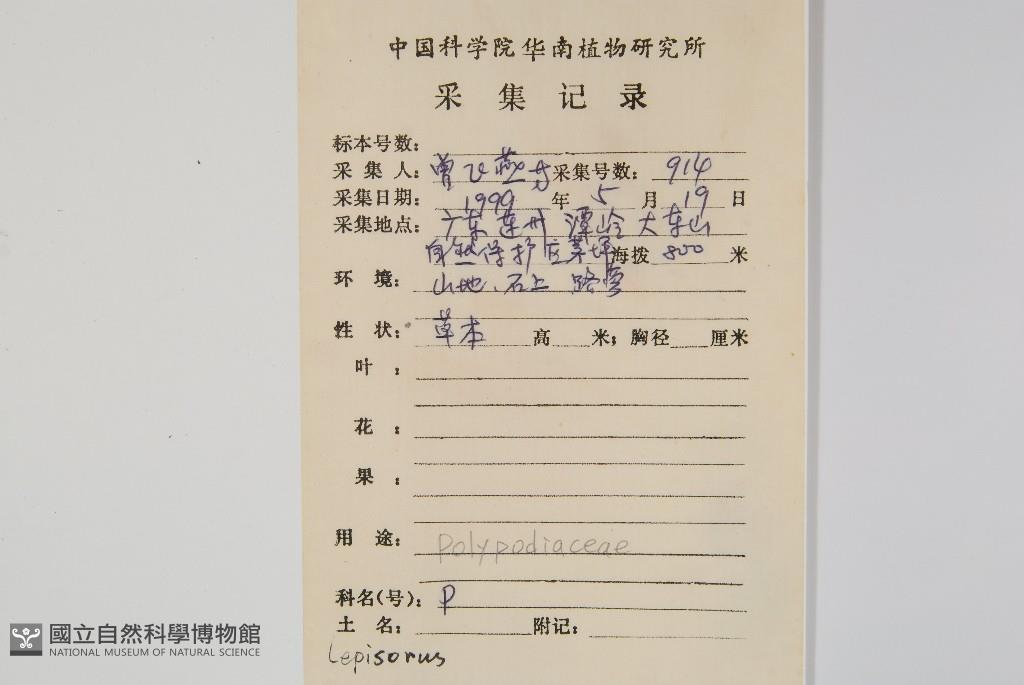 中国科学院华南植物研究所
采集记录
标本号数:
采集人: 曾飞燕 采集号数: 914
采集日期: 1999 年 5 月 19 日
采集地点: 广东连州潭岭大东山
自然保护区菜坪 海拨 800 米
环境: 山地、石上 路旁
性状: 草本 高 米; 胸径 厘米
叶:
花:
果:
用途: Polypodiaceae
科名(号): P
土名: 附记:
Lepisorus
國立自然科學博物館
NATIONAL MUSEUM OF NATURAL SCIENCE